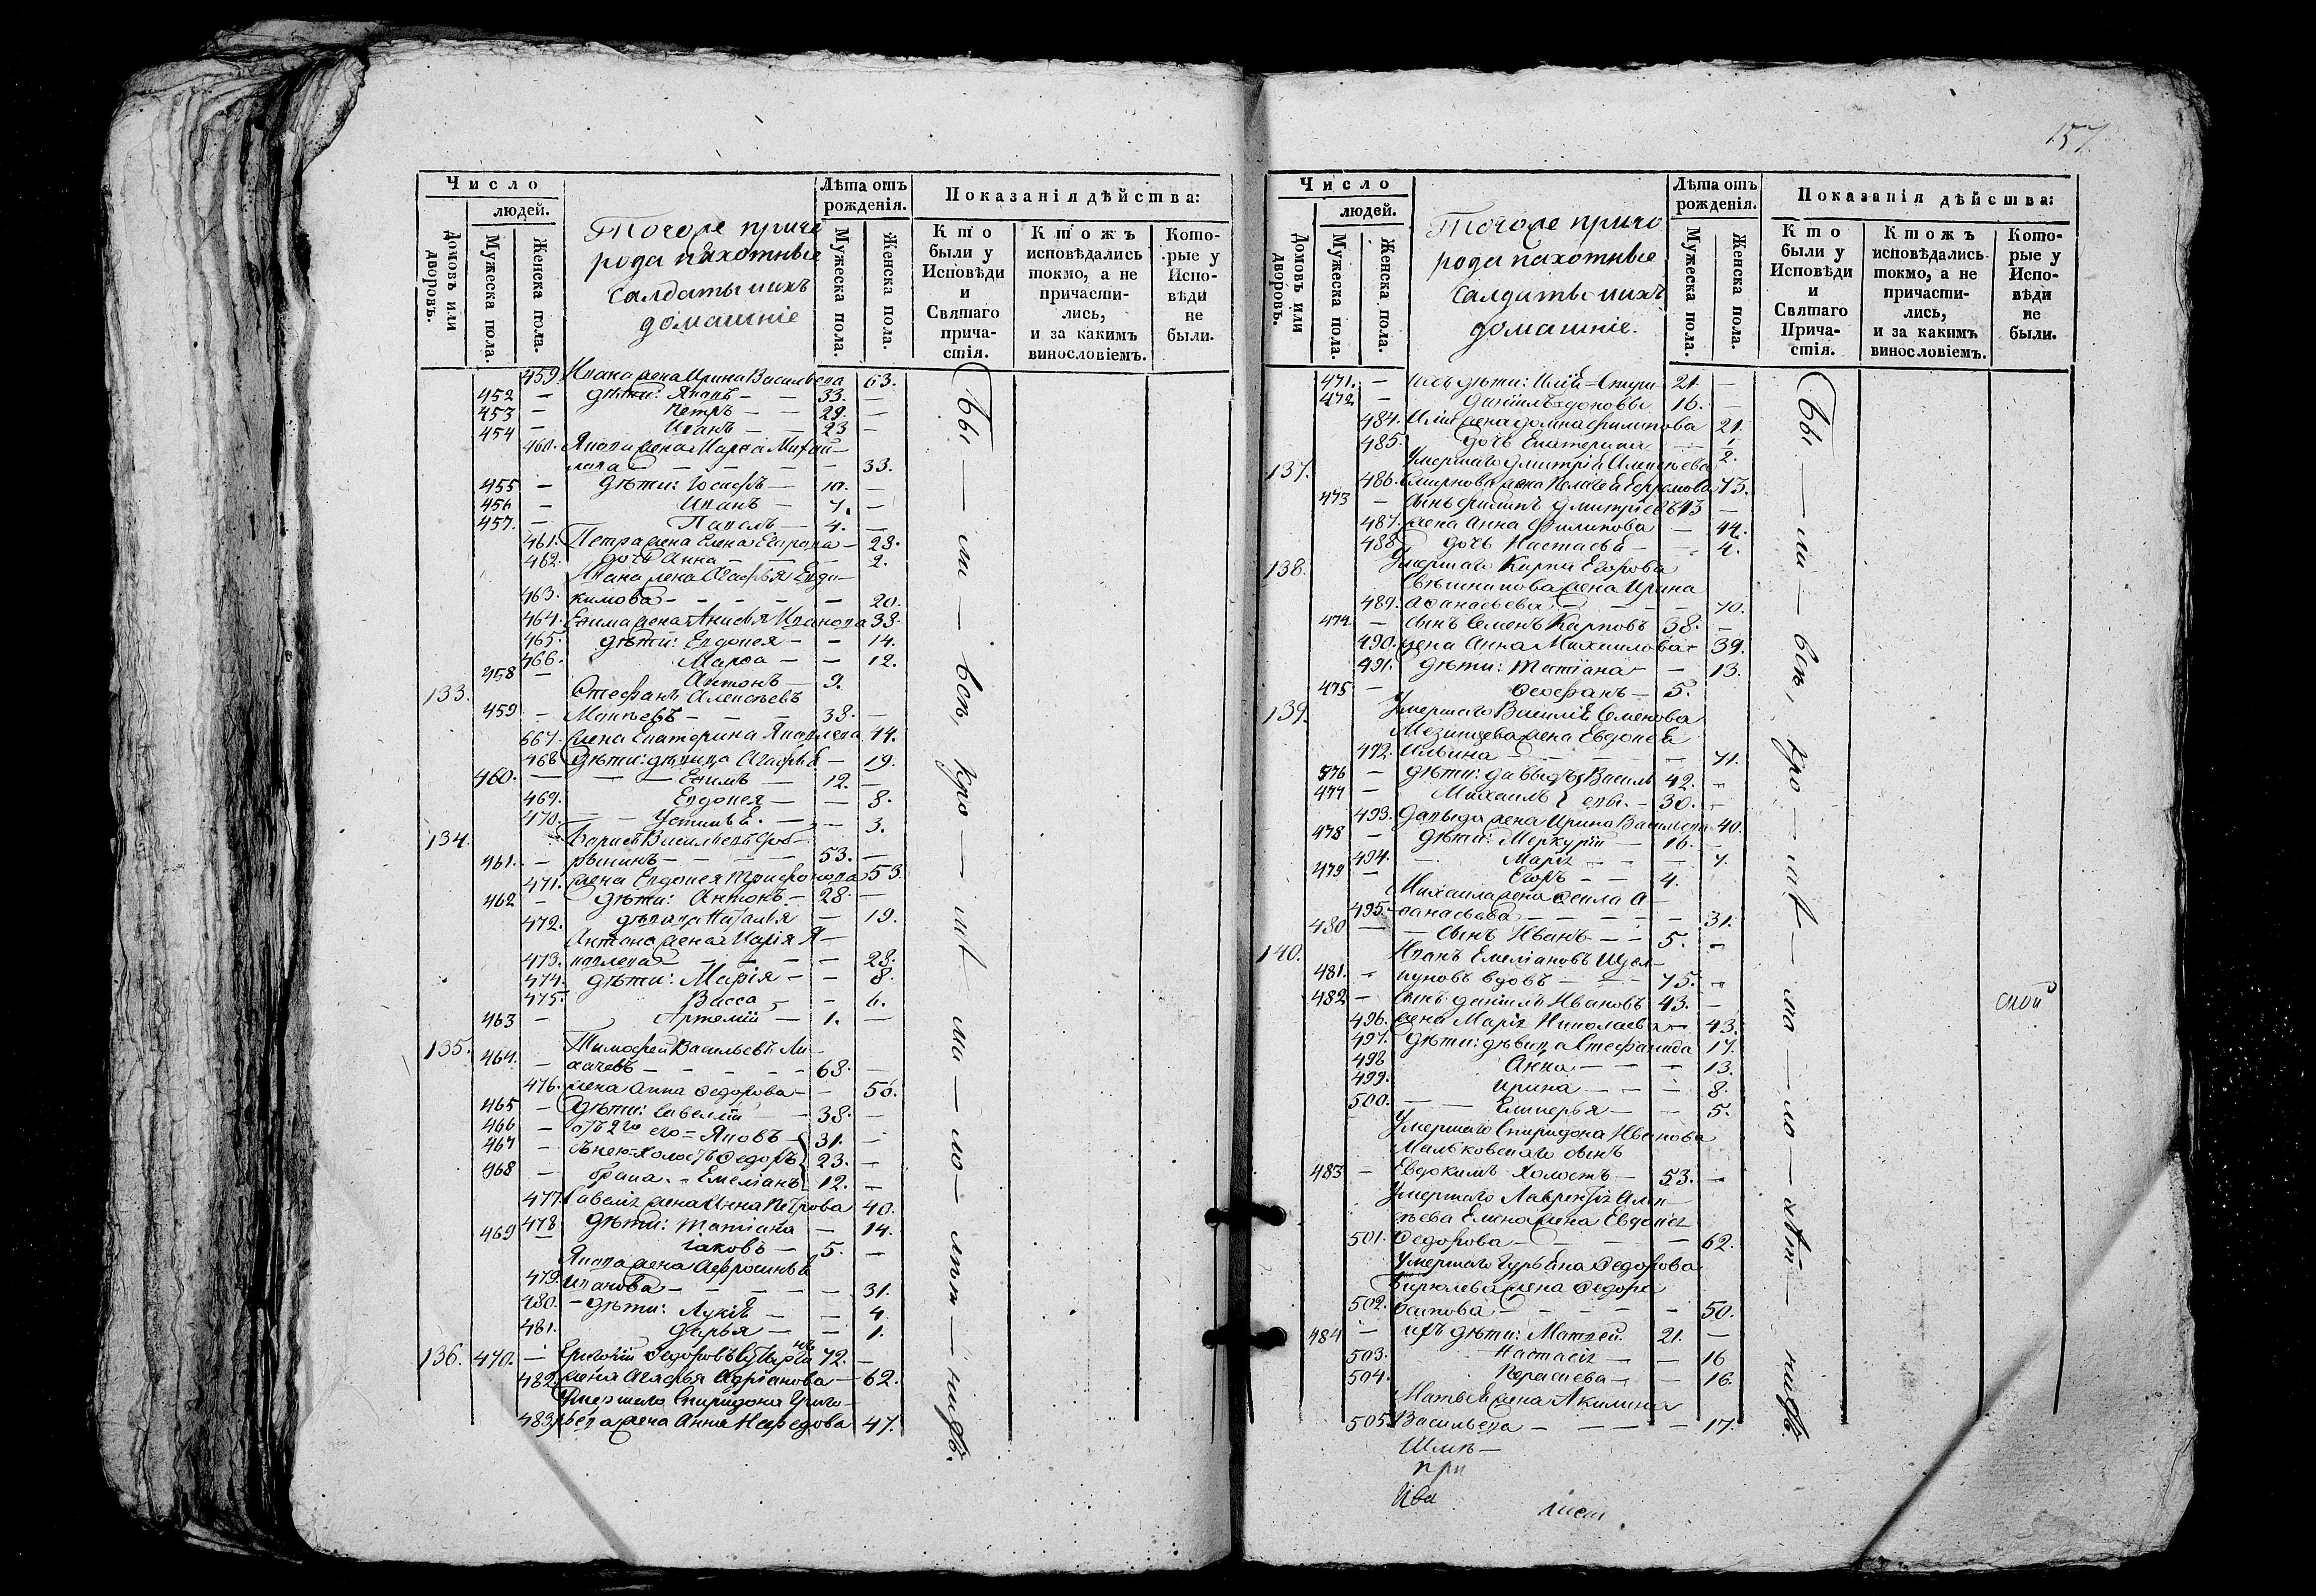 Число
людей.
Домовъ или дворовъ.
Мужеска пола.
Женска пола.
Тогоже приго
рода пахотные
салдаты ихъ
домашніе
Лѣта отъ
рожденія.
Мужеска пола.
Женска пола.
Показанія дѣйства:
Кто были у Исповѣди и Святаго причастія.
Ктожъ исповѣдались токмо, а не причастились, и за какимъ винословіемъ.
Которые у Исповѣди не были.
459. Ивана жена Ирина Васильева 63.
452 — дѣти: Яковъ — — 33. —
453 — Петръ — — 29. —
454 — Иванъ — — 23 —
460. Якова жена Марѳа Михай-
лова — — — — — 33.
455 — дѣти: Іосифъ — 10. —
456 — Иванъ — 7. —
457. — Павелъ — 4. —
461. Петра жена Елена Егорова — 28.
462. дочь Анна — — — 2.
Ивана жена Агафья Евдо-
463. кимова — — — — — 20.
464. Екима жена Анисья Иванова 38.
465. дѣти: Евдокея — — 14.
466. Марѳа — — 12.
458 — Антонъ — 9.
133. Стефанъ Алексѣевъ
459 — — — — 38. —
667. жена Екатерина Яковлева 44.
468 дѣти: дѣвица Агафья — 19.
460. — — — Екимъ — 12. —
469. Евдокея — — 8.
470. — — — 3.
134. Борисъ Васильевъ
461. — — — — — 53. —
471. жена Евдокея Трифонова 53.
462 — дѣти: Антонъ — 28. —
472. дѣвица Наталья — 19.
Антона жена Марія Я-
473. ковлева — — — — 28.
474. дѣти: Марія — — 8.
475. Васса — — 6.
463 — Артемій — 1. —
135. Тимофей Васильевъ Ли-
464. — хачевъ — — — — — 68. —
476. жена Анна Федорова — — 56.
465 — дѣти: Савелій — 38. —
466 — отъ 2го его = Яковъ — 31. —
467 — Холостъ Федоръ 23. —
468 — брака. = Емеліанъ 12. —
477. Савелія жена Анна Петрова 40.
478 дѣти: Татіана — 14.
469 — Іаковъ — 5. —
Якова жена Афросинья
479. Иванова — — — — — 31.
480. — дѣти: — — 4.
481. Дарья — — 1.
136. 470. — Григорій Федоровъ 72. —
482. жена Агафья Адріанова — 62.
Умершаго Спиридона Григо-
483. рьева жена Анна Нефедова 47.
Бы — ли — всѣ,
157
Число
людей.
Домовъ или дворовъ.
Мужеска пола.
Женска пола.
Тогоже приго
рода пахотные
салдаты ихъ
домашніе.
Лѣта отъ
рожденія.
Мужеска пола.
Женска пола.
Показанія дѣйства:
Кто были у Исповѣди и Святаго Причастія.
Ктожъ исповѣдались токмо, а не причастились, и за какимъ винословіемъ.
Которые у Исповѣди не были.
471. — ихъ дѣти: Илія = 21. —
472 — Даніилъ 16. —
484. Иліи жена Домна Филипова 21.
485. дочь Екатерина — 2.
137. Умершаго Димитрія Алексѣева
486. Смирнова жена Пелагея Ефремова 73.
473 — сынъ Филипъ Димитріевъ 43 —
487. жена Анна Филипова — 44.
488 дочь Настасья — — 4.
138. Умершаго Карпа Егорова
жена Ирина
489. Афанасьева — — — — 70.
474. — сынъ Семенъ Карповъ 38. —
490. жена Анна Михаилова — 39.
491. дѣти: Татіана — — 13.
475 — Феофанъ — 5.
139. Умершаго Василія Семенова
жена Евдокея
492. Ильина — — — — 71.
576 — дѣти: Давыдъ Василь 42. —
477 — Михаилъ евы. — 30. —
493. Давыда жена Ирина Васильева 40.
478 — дѣти: Меркурій — 16. —
494. — Марія — — 7.
479 — Егоръ — — 4.
Михаила жена Фекла А-
495. фанасьева — — — — 31.
480 — — сынъ Иванъ — — 5. —
140. Иванъ Емеліановъ Щел-
481. — куновъ вдовъ — — 75. —
482 — сынъ Даніилъ Ивановъ 43. —
496. жена Марія Николаева — 43.
497. дѣти: дѣвица Стефанида 17.
498 Анна — — — 13.
499. Ирина — — — 8.
500. — — Гликерья — — 5.
Умершаго Спиридона Иванова
Мальковскаго сынъ
483 — Евдокимъ холостъ — 53. —
Умершаго Лаврентія Алек-
сѣева Елина жена Евдокія
501. Федорова — — — 62.
Умершаго Гурьяна Федорова
Бирюлева жена Федора
502. Осипова — — — — 50.
484 — ихъ дѣти: Матвей. 21. —
503. Настасія — — 16
504. Парасковья — — 16.
Матвея жена Акилина
505. Васильева — — — — 17.
Бы — ли — всѣ,
при
Ива
лист